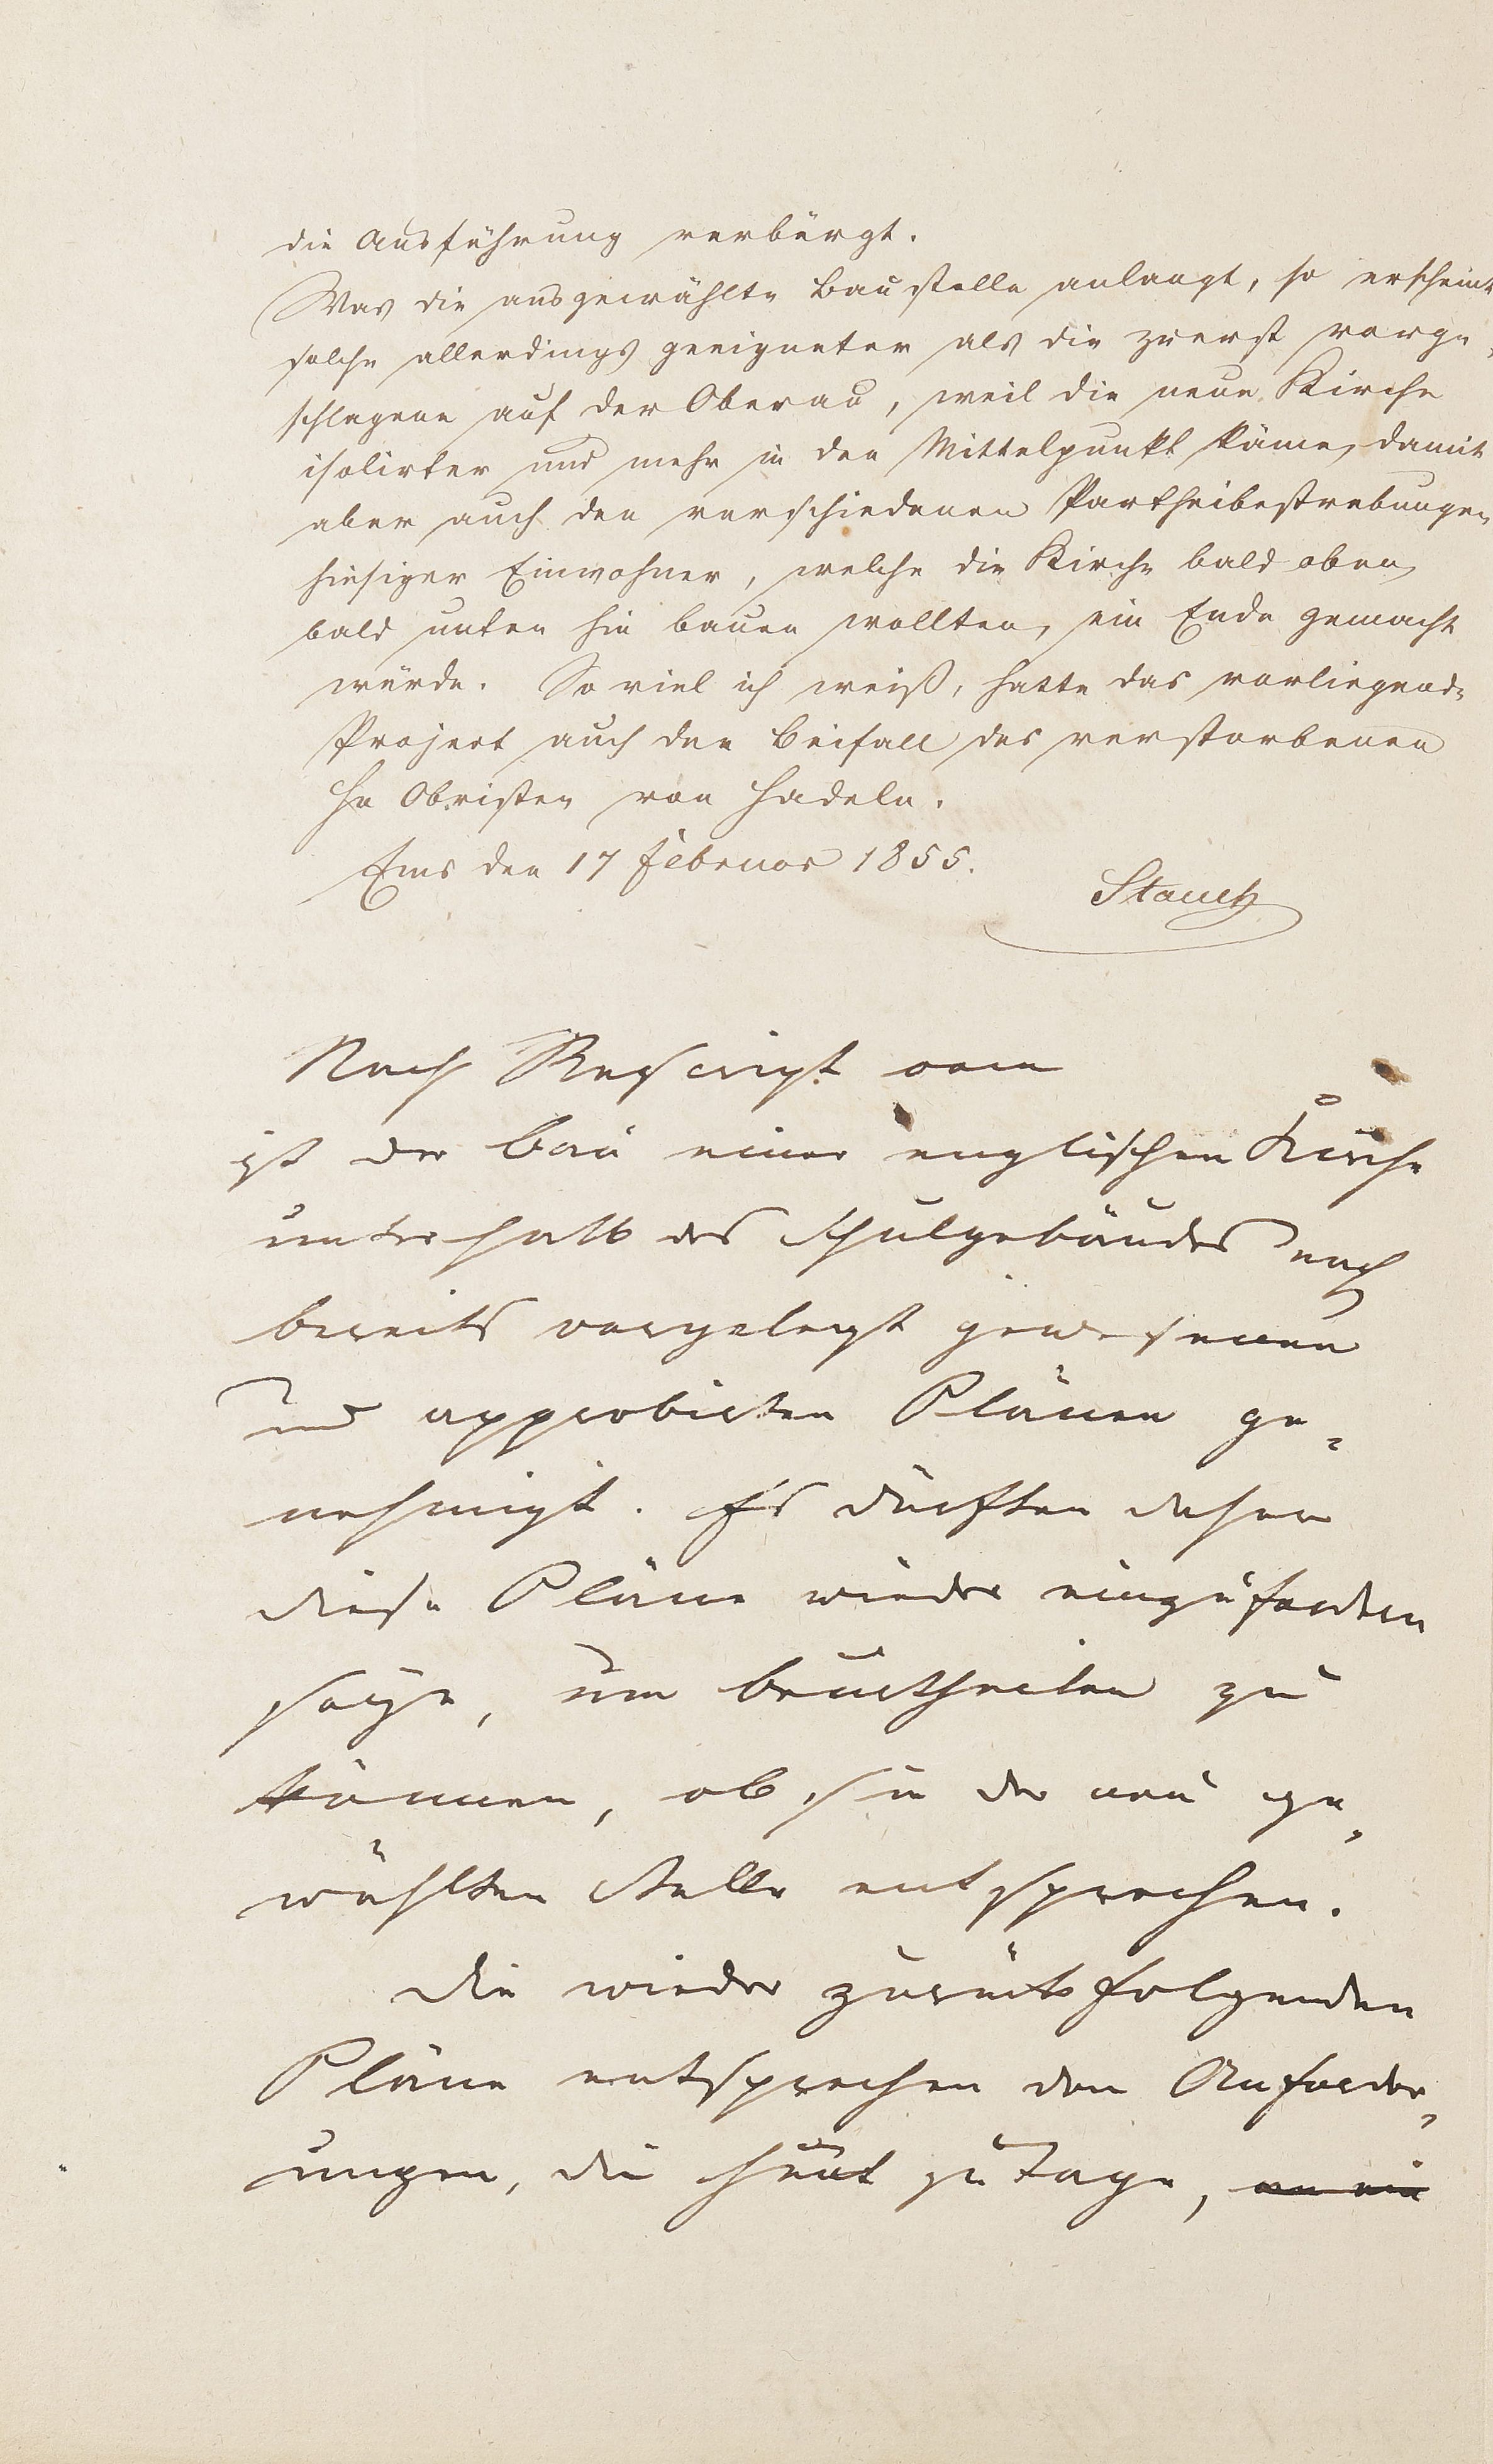 die Ausführung verbürgt.
Was die ausgewählte Baustelle anlangt, so erscheint
solche allerdings geeigneter als die zuerst vorge=
schlagene auf der Oberau, weil die neue Kirche
isolirter und mehr in den Mittelpunkt käme, damit
aber auch den verschiedenen Partheibestrebungen
hiesiger Einwohner, welche die Kirche bald oben,
bald unten hin bauen wollten, ein Ende gemacht
würde. So viel ich weiß, hatte das vorliegende
Project auch den Beifall des verstorbenen
Hn Obristen von Hadeln.
Ems den 17 Februar 1855.
Stauch
Nach Rescript vom
ist der Bau einer englischen Kirche
unterhalb des Schulgebäudes nach
bereits vorgelegt gewesenen
und approbirten Plänen ge=
nehmigt. Es dürften daher
diese Pläne wieder einzufordern
seyn, um beurtheilen zu
können, ob sie der neu ge=
wählten Stelle entsprechen.
Die wieder zurückfolgenden
Pläne entsprechen den Anforder=
ungen, die heut zu Tage, an ein